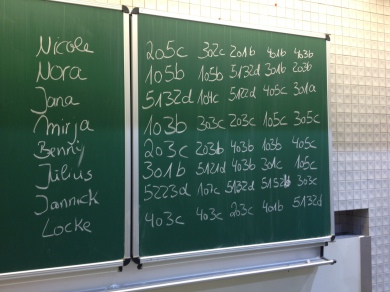 Nicole
Nora
Jana
Mirja
Benny
Julius
Jannick
Locke
205c 302c 201b 401b 403b
105b 105b 5132d 301b 203b
5132d 101c 5122d 405c 301a
103b 303c 203c 105c 305c
203c 203b 403b 103b 405c
301b 5121d 403b 301c 105c
5223d 101c 5132d 303c
403c 403c 203c 401b 5132d